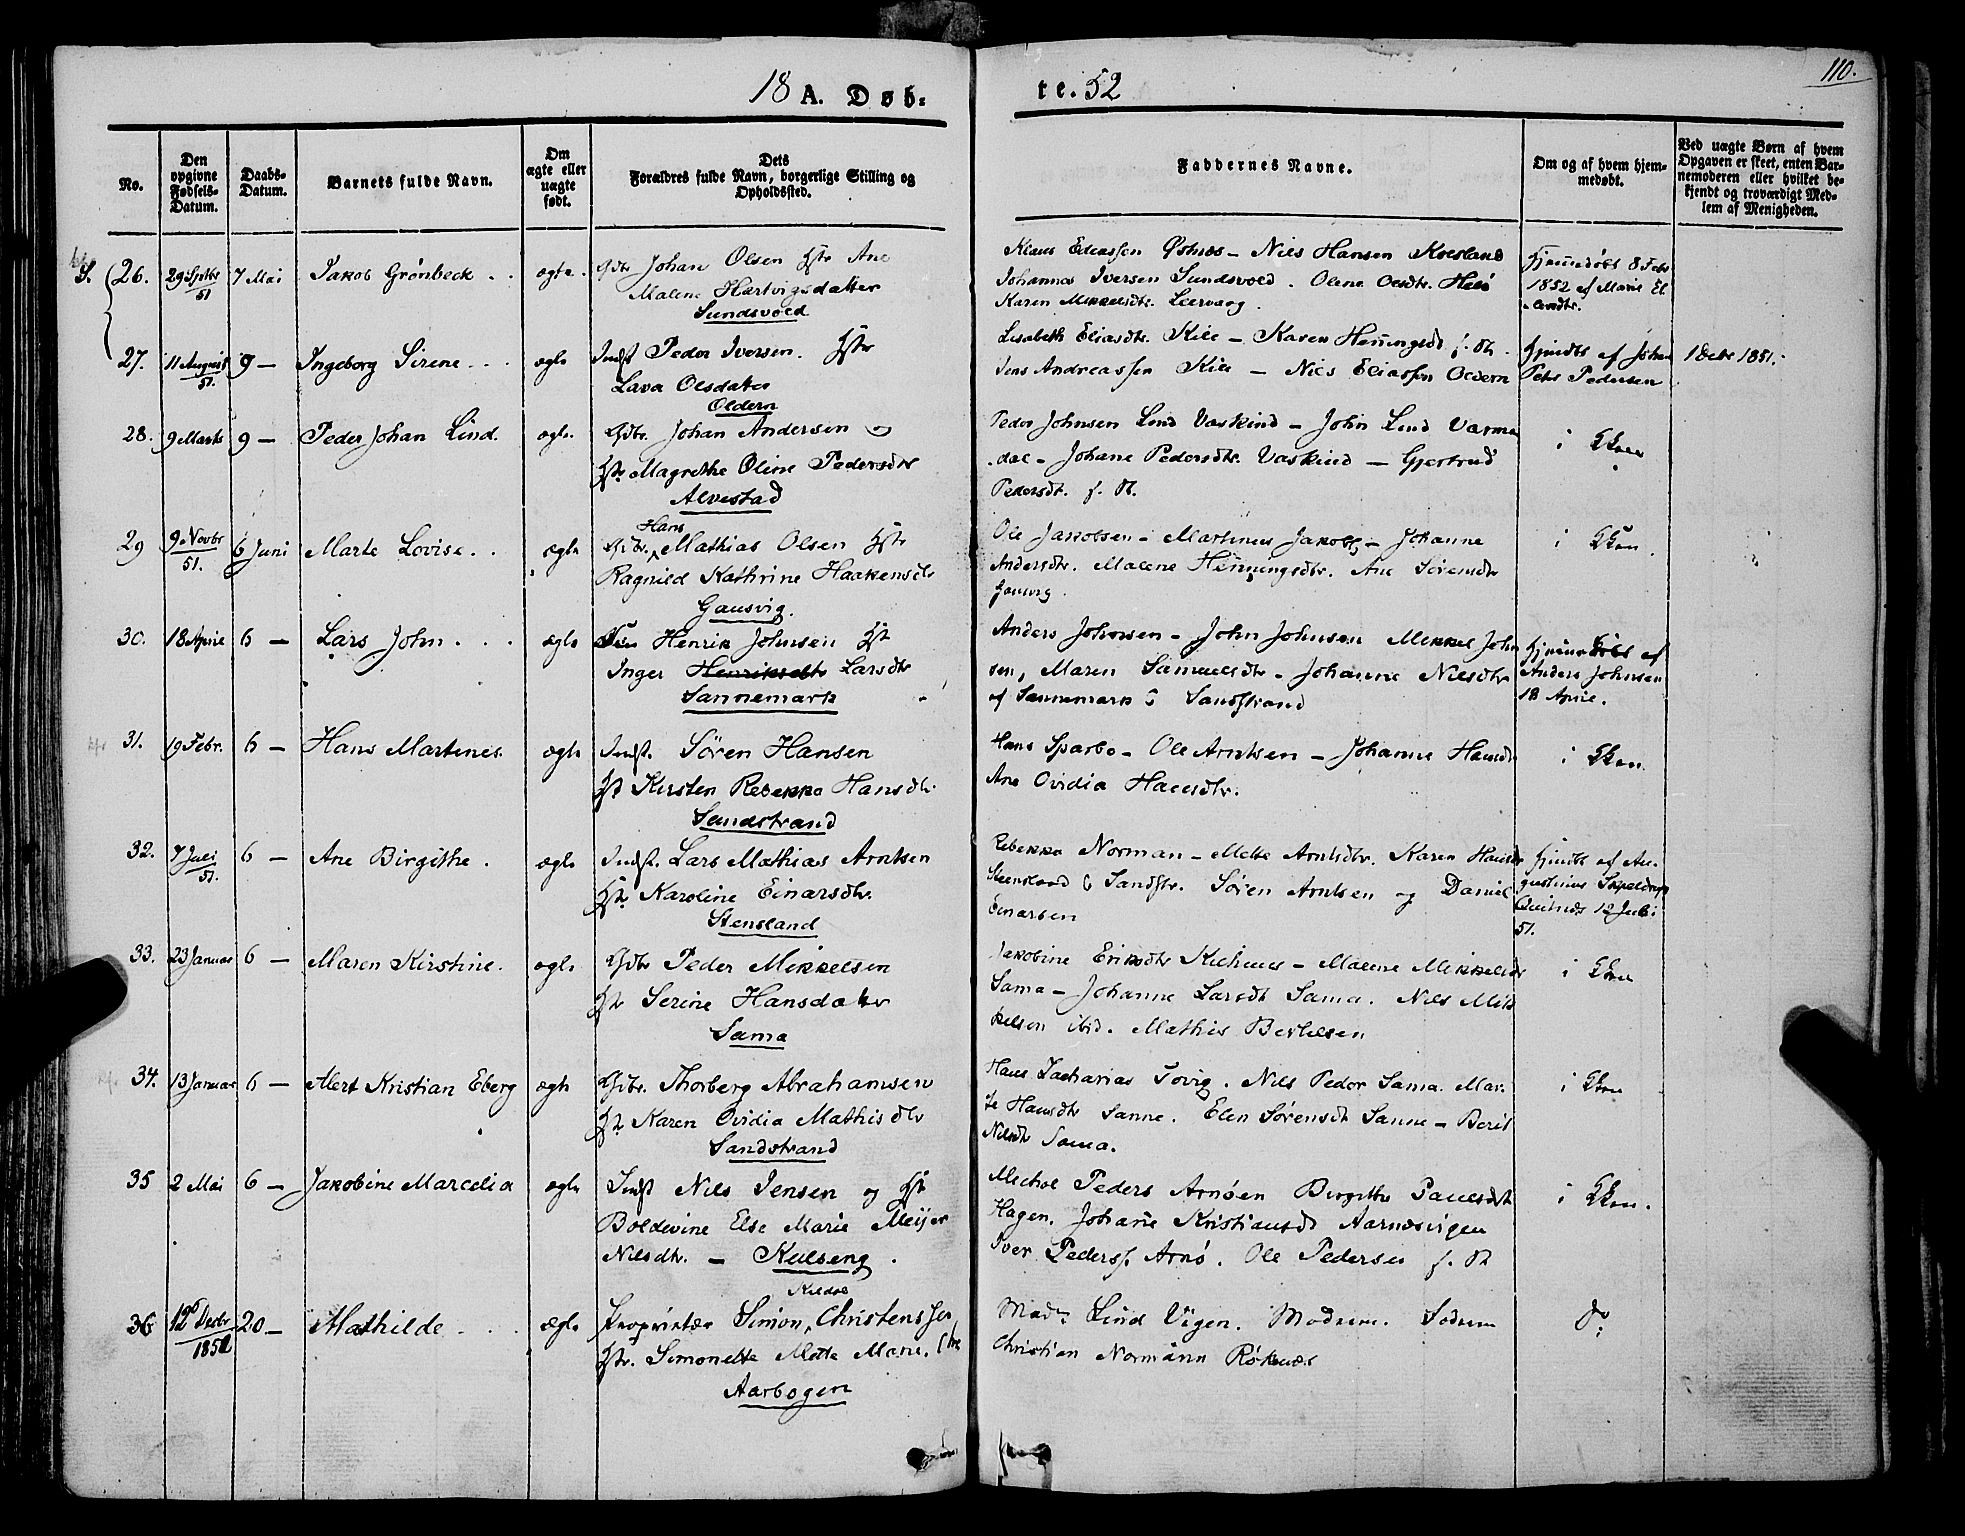 110.
18 A. Døb-
te. 52
No.
Den opgivne Fødsels-Datum.
Daabs-Datum.
Barnets fulde Navn.
Om ægte eller uægte født.
Dets Forældres fulde Navn, borgerlige Stilling og Opholdssted.
Faddernes Navne.
Om og af hvem hjem-medøbt.
Ved uægte Børn af hvem Opgaven er skeet, enten Bar-nemoderen eller hvilket be-kjendt og troværdigt Med-lem af Menigheden.
26. 29 Septbr 51 7 Mai Jakob Grønbeck ægte Gdbr Johan Olsen Hstr Ane
Malene Hartvigsdatter
Sundsvold
Klaus Eliassen Østnes - Niels Hansen
Johannes Iversen Sundsvold. Olene Olsdtr.
Karen Mikkelsdtr. Leervaag.
Hjemmedøbt 8 Febr
1852 af Marie El
27. 11 August 51. 9 - Ingeborg Sirene ægte Indst Peder Iversen. Hstr
Lava Olsdatter
Oldern
Lisabeth Eliasdtr. Kile - Karen Henningsdt f. St.
Jens Andreassen Kile - Niels Eliassen Oldern
Hjmdbt af Johan
Peter Pedersen
1 Octbr 1851.
28. 9 Marts 9 - Peder Johan Lind. ægte Gdbr. Johan Andersen og
Hstr Magrethe Oline Pedersdtr
Alvestad
Peder Johnsen Lind Vaskind - John Lind Varme
dal - Johane Pedersdtr. Vaskind - Gjertrud
Pedersdt. f. St.
i Kken
29 9 Novbr 51. 6 Juni Marte Lovise ægte Gdbr. Hans Mathias Olsen Hstr
Ragnild Kathrine Haakensdtr
Gausvig.
Ole Jakobsen - Martinus Jakobs - Johanne
Andersdtr. Malene Henningsdtr. Ane Sørensdtr
Gausvig.
i Kken.
30. 18 April 6 - Lars John ægte Henrik Johnsen Hst
Inger Henriksdtr Larsdtr
Sannemark
Anders Johnsen - John Johnsen Mikkel John
sen, Maren Samuelsdtr - Johanne Nilsdtr
af Sannemark & Sandstrand
Hjemmedøbt af
Anders Johnsen
18 April.
31. 19 Febr. 6 - Hans Martines ægte Indst. Søren Hansen
Hst Kirsten Rebekka Hansdtr
Sandstrand
Hans Sparbo - Ole Arntsen - Johanne Hansdtr
Ane Ovidia Hansdtr.
i Kken.
32. 7 Juli 51. 6 - Ane Birgithe. ægte Indst. Lars Mathias Arntsen
Hst. Karoline Einarsdtr.
Stensland
Rebekka Norman - Mette Arntsdtr. Karen Hansdtr
Steensland & Sandstr. Søren Arntsen og Daniel
Einarsen
Hjmdbt af Au-
gustinus
12 Juli
51.
33. 23 Januar 6 - Maren Kirstine. ægte Gdbr Peder Mikkelsen
Hst Serine Hansdatter
Sama
Jakobine Eriksdtr - Malene Mikkelsdtr
Sama - Johanne Larsdt Sama. Nils Mik
kelsen ibid. Mathis Bertelsen
i Kken
34. 13 Januar 6 - Alert Kristian Eberg ægte Gdbr. Thorberg Abrahamsen
Hst Karen Ovidia Mathisdtr
Sandstrand
Hans Zacharias Tovig. Nils Peder Sama. Mar-
te Hansdtr Sanne. Elen Sørensdt Sanne - Berit
Nilsdt Sama.
i Kken
35 2 Mai 6 - Jakobine Marcelia ægte Indst Nils Jensen og Hst
Boldevine Else Marie Meijer
Nilsdtr. - Kulseng.
Michal Peders Arnøen Birgitte Paulsdt
Hagen. Johane Kristiansdt Aarnesvigen
Iver Peders. Arnø. Ole Pedersen f. St
i Kken.
36 12 Decbr 1851 20 - Mathilde ægte Proprietær Simon Kildal Christensen
Hstr. Simonette Mette Marie
Aarbogen
Mad. Lind Vigen.
Christian Normann Røkenæs
do